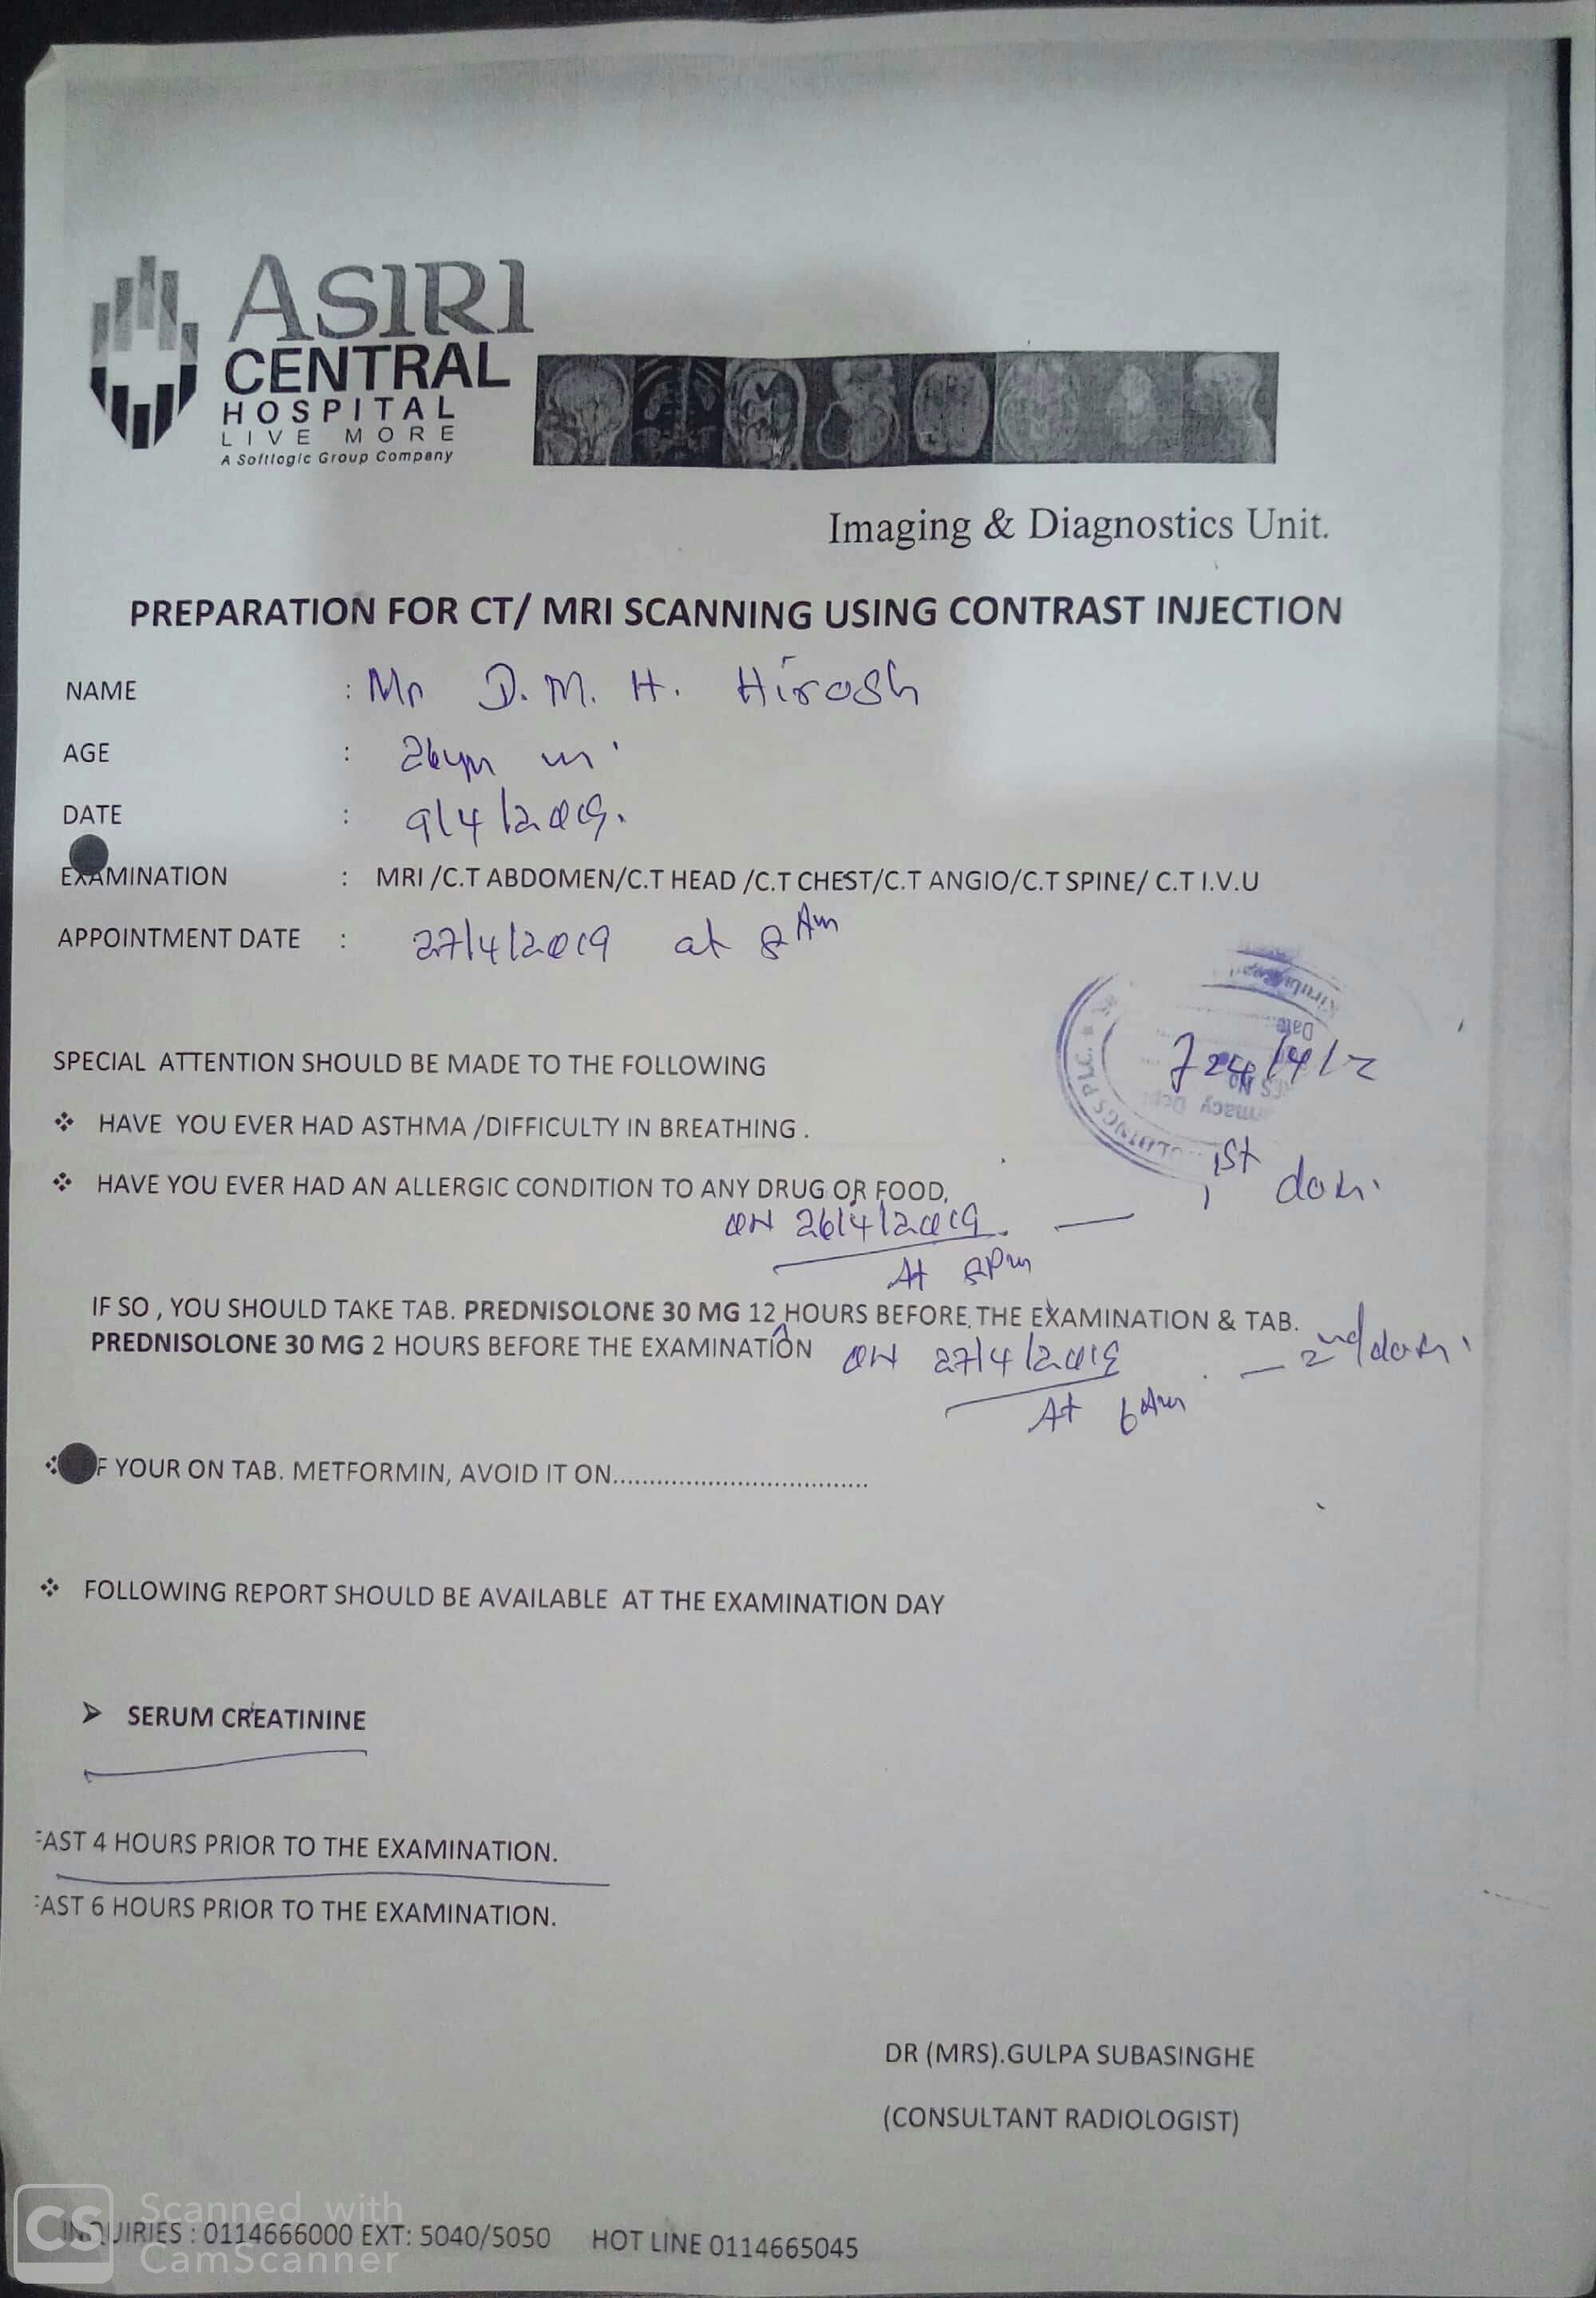 ASIRI
CENTRAL
HOSPITAL
LIVE MORE
A Softlogic Group Company
Imaging & Diagnostics Unit.
PREPARATION FOR CT/ MRI SCANNING USING CONTRAST INJECTION
NAME : Mr D. M. H. Hirosh
AGE : 26yr m
DATE : 9/4/2019.
EXAMINATION : MRI /C.T ABDOMEN/C.T HEAD /C.T CHEST/C.T ANGIO/C.T SPINE/ C.T I.V.U
APPOINTMENT DATE : 27/4/2019 at 8 Am
SPECIAL ATTENTION SHOULD BE MADE TO THE FOLLOWING
❖ HAVE YOU EVER HAD ASTHMA /DIFFICULTY IN BREATHING .
❖ HAVE YOU EVER HAD AN ALLERGIC CONDITION TO ANY DRUG OR FOOD,
ON 26/4/2019. — 1st
At 8Pm
IF SO , YOU SHOULD TAKE TAB. PREDNISOLONE 30 MG 12 HOURS BEFORE THE EXAMINATION & TAB.
PREDNISOLONE 30 MG 2 HOURS BEFORE THE EXAMINATION ON 27/4/2019 — 2nd
At 6Am
❖ F YOUR ON TAB. METFORMIN, AVOID IT ON....................................
❖ FOLLOWING REPORT SHOULD BE AVAILABLE AT THE EXAMINATION DAY
➢ SERUM CREATININE
FAST 4 HOURS PRIOR TO THE EXAMINATION.
FAST 6 HOURS PRIOR TO THE EXAMINATION.
DR (MRS).GULPA SUBASINGHE
(CONSULTANT RADIOLOGIST)
INQUIRIES : 0114666000 EXT: 5040/5050 HOT LINE 0114665045
CS Scanned with
CamScanner